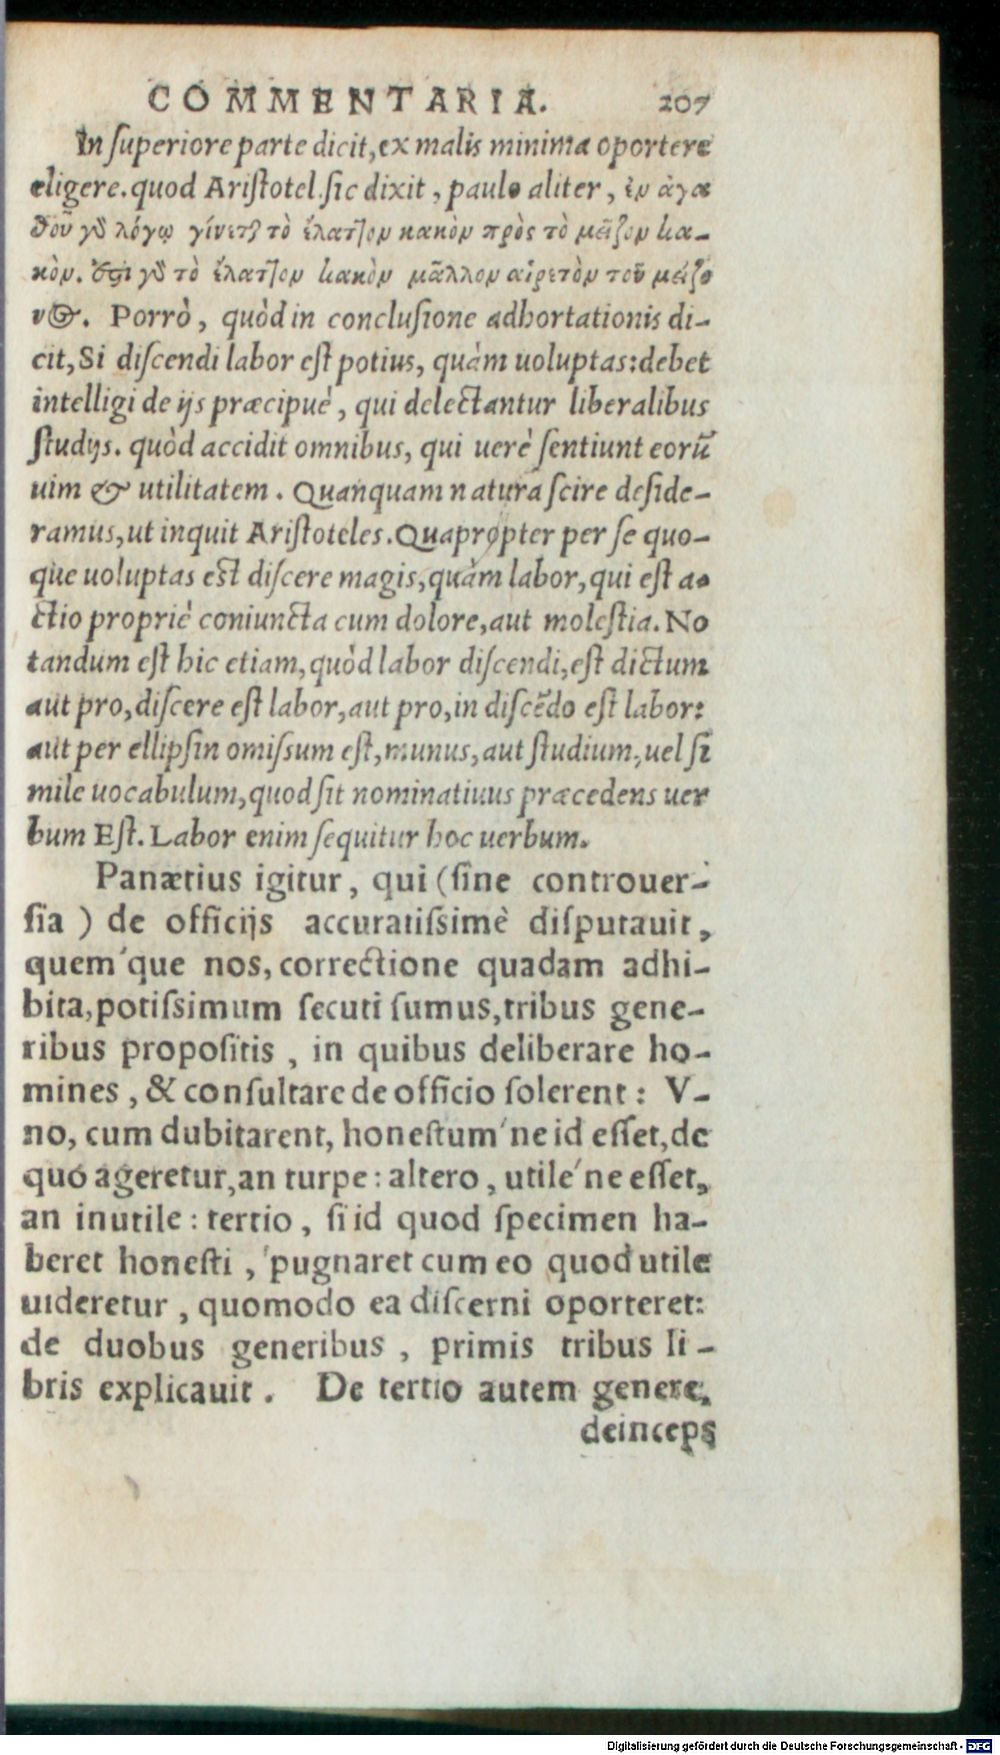 COMMENTARIA. 207
In ſuperiore parte dicit, ex malis minima oportere
eligere. quod Ariſtotel. ſic dixit, paulo aliter, ἐν ἀγα
θοῦ γὸ λόγῳ γίνετ) τὸ ἔλαττον κακὸν πρὸς τὸ μεῖζον κα-
κὸν. ἔστι γὸ τὸ ἔλαττον κακὸν μᾶλλον αἱρετὸν τοῦ μείζο
νος. Porrò, quòd in concluſione adhortationis di-
cit, Si diſcendi labor eſt potius, quàm uoluptas: debet
intelligi de ijs præcipuè, qui delectantur liberalibus
ſtudijs. quòd accidit omnibus, qui uerè ſentiunt eorũ
uim & utilitatem. Quanquam natura ſcire deſide-
ramus, ut inquit Ariſtoteles. Quapropter per ſe quo-
que uoluptas eſt diſcere magis, quàm labor, qui eſt a-
ctio propriè coniuncta cum dolore, aut moleſtia. No
tandum eſt hic etiam, quòd labor diſcendi, eſt dictum
aut pro, diſcere eſt labor, aut pro, in diſcẽdo eſt labor:
aut per ellipſin omiſsum eſt, munus, aut ſtudium, uel ſi
mile uocabulum, quod ſit nominatiuus præcedens uer
bum Eſt. Labor enim ſequitur hoc uerbum.
Panætius igitur, qui (ſine controuer-
ſia) de officijs accuratiſsimè diſputauit,
quem'que nos, correctione quadam adhi-
bita, potiſsimum ſecuti ſumus, tribus gene-
ribus propoſitis, in quibus deliberare ho-
mines, & conſultare de officio ſolerent: V-
no, cum dubitarent, honeſtum'ne id eſſet, de
quo ageretur, an turpe: altero, utile'ne eſſet,
an inutile: tertio, ſi id quod ſpecimen ha-
beret honeſti, pugnaret cum eo quod utile
uideretur, quomodo ea diſcerni oporteret:
de duobus generibus, primis tribus li-
bris explicauit. De tertio autem genere,
deinceps
Digitalisierung gefördert durch die Deutsche Forschungsgemeinschaft - DFG